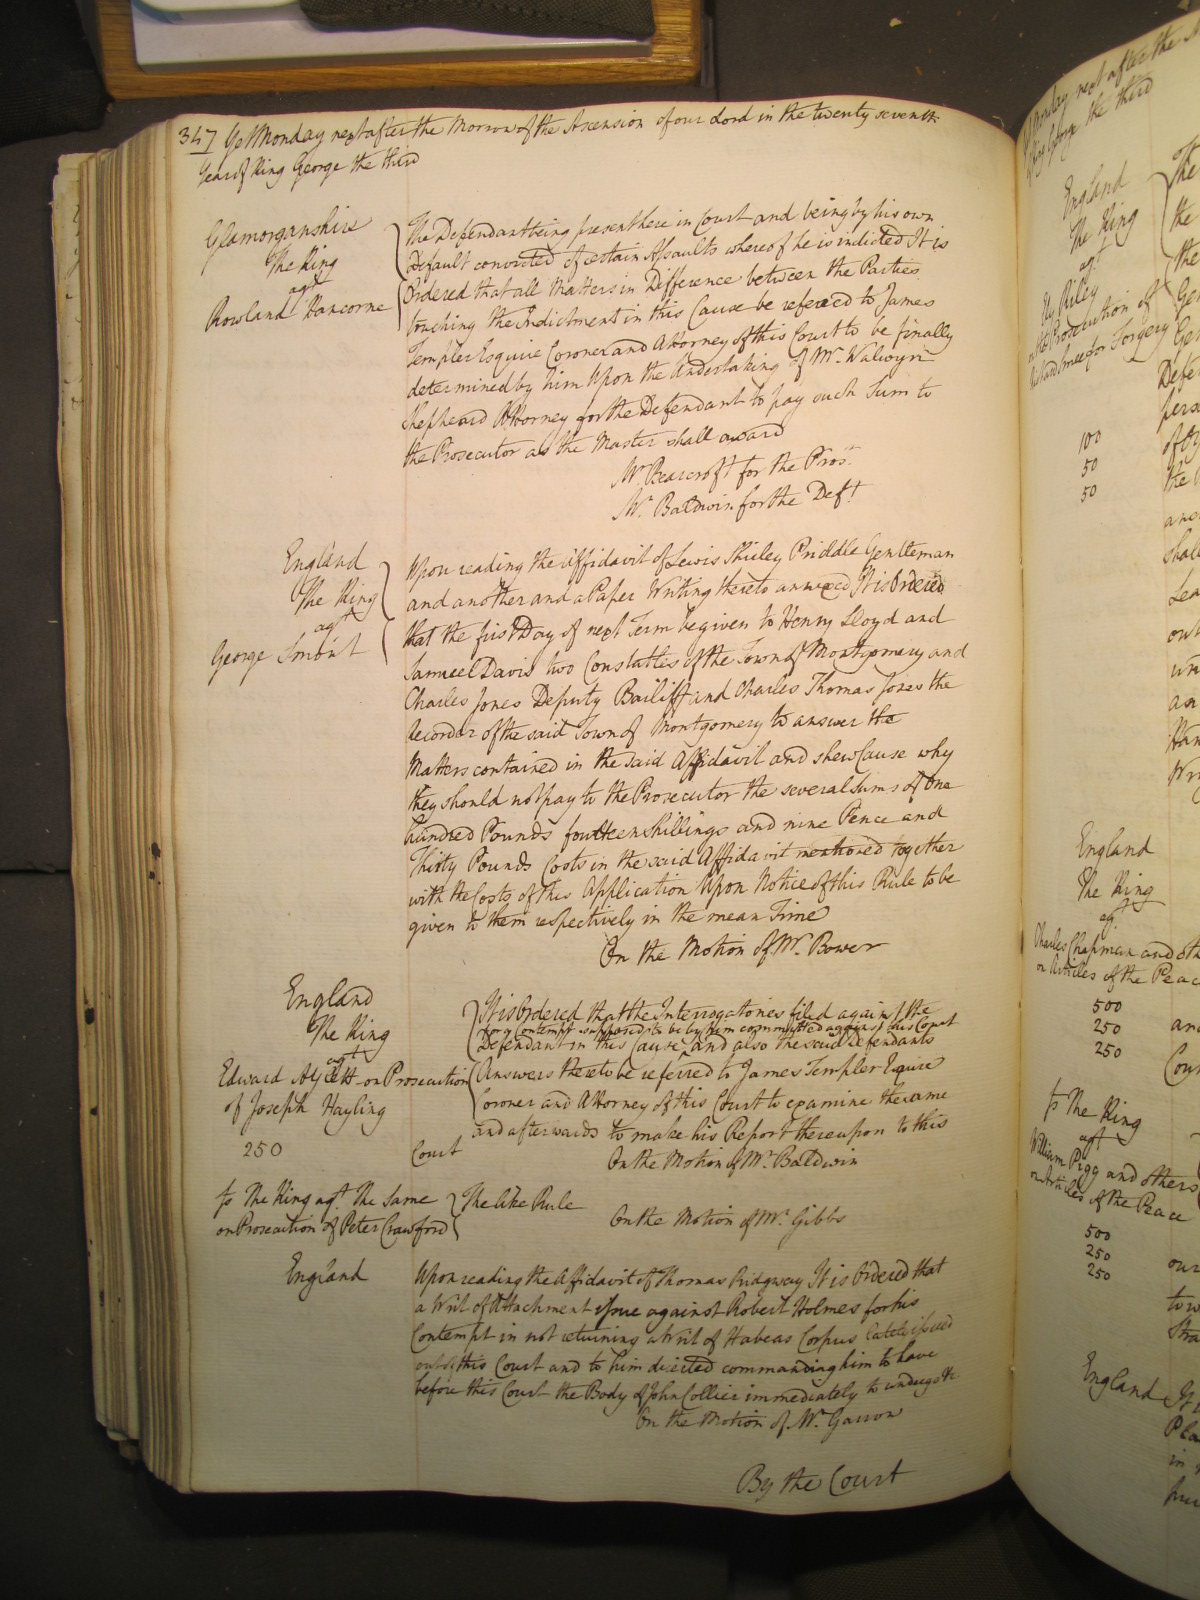 347 Yet Monday next after the Morrow of the Ascension of our Lord in the twenty seventh
Year of King George the third
Glamorganshire
The King
agt
Rowland Hancorne
The Defendant being present here in Court and being by his own
Default convicted of certain Assaults whereof he is indicted It is
Ordered that all Matters in Difference between the Parties
touching the Indictment in this Cause be refereed to James
Templer Esquire Coroner and Attorney of this Court to be finally
determined by him Upon the Undertaking of Mr. Walwyn
Shepheard Attorney for the Defendant to pay such Sum to
the Prosecutor as the Master shall award
Mr Bearcroft for the Prosr.
Mr. Baldwin for the Deft
England
The King
agt
George
Upon reading the Affidavit of Lewis Shirley Priddle Gentleman
and another and a Paper Writing thereto annexed It is Ordered
that the first Day of next Term be given to Henry Lloyd and
Samuel Davis two Constables of the Town of Montgomery and
Charles Jones Deputy Bailiff and Charles Thomas Jones the
Recorder of the said Town of Montgomery to answer the
Matters contained in the said Affidavit and shew Cause why
they should not pay to the Prosecutor the several sums of One
hundred Pounds fourteen Shillings and nine Pence and
Thirty Pounds Costs in the said Affidavit mentioned together
with the Costs of this Application Upon Notice of this Rule to be
given to them respectively in the mean Time
On the Motion of Mr. Bower
England
The King
agt
Edward Aylett on Prosecution
of Joseph Hayling
250
It is Ordered that the Interrogatories filed against the
for a Contempt supposed to be by him committed against this Court
Defendant in this Cause and also the said Defendants
Answers thereto be referred to James Templer Esquire
Coroner and Attorney of this Court to examine the same
and afterwards to make his Report thereupon to this
Court
On the Motion of Mr. Baldwin
The King agt. The Same
on Prosecution of Peter Crawford
The like Rule
On the Motion of Mr. Gibbs
England
Upon reading the Affidavit of Thomas Ridgway It is Ordered that
a Writ of Attachment issue against Robert Holmes for his
Contempt in not returning a Writ of Habeas Corpus lately issued
out of this Court and to him directed commanding him to have
before this Court the Body of John Collier immediately to undergo &c
On the Motion of Mr. Garrow
By the Court
Monday next after the
of King George the third
England
The King
agt
Riley
on the Prosecution of
for Forgery
100
50
50
England
The King
agt
Charles Chapman and
on Articles of the Peace
500
250
250
The King
agt
William Pigg and others
on Articles of the Peace
500
250
250
England